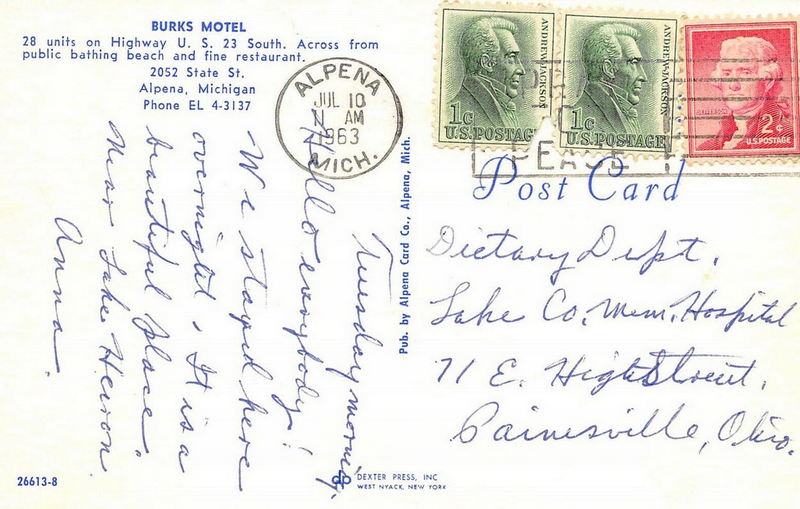 BURKS MOTEL
28 units on Highway U. S. 23 South. Across from
public bathing beach and fine restaurant.
2052 State St.
Alpena, Michigan
Phone EL 4-3137
ALPENA
JUL 10
AM
1963
MICH.
1c
U.S. POSTAGE
ANDREW JACKSON
1c
U.S. POSTAGE
ANDREW JACKSON
2c
U.S. POSTAGE
Post Card
Tuesday morning.
Hello everybody!
We stayed here
overnight. It is a
beautiful place.
Near Lake Heuron.
Anna.
Pub. by Alpena Card Co., Alpena, Mich.
Dietary Dept.
Lake Co. Mem. Hospital
71 E. High Street.
Painesville, Ohio.
26613-8
DEXTER PRESS, INC
WEST NYACK, NEW YORK